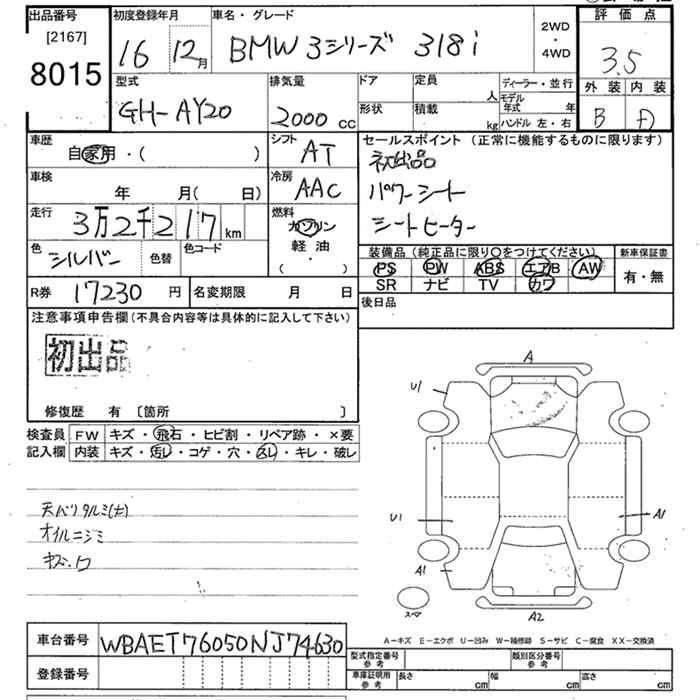 出品番号
[2167]
8015
初度登録年月
16 12月
車名・グレード
BMW 3シリーズ 318i
2WD
・
4WD
評価点
3.5
外装 内装
B D
型式
GH-AY20
排気量
2000 cc
ドア
形状
定員 人
積載 kg
ディーラー・並行
モデル年式 年
ハンドル 左・右
車歴
自家用・( )
シフト
AT
車検
年 月( 日)
冷房
AAC
走行
3万2千217 km
燃料
ガソリン
軽油
( ・ )
色
シルバー
色替
色コード
R券 17230 円
名変期限 月 日
セールスポイント (正常に機能するものに限ります)
初出品
パワーシート
シートヒーター
装備品 (純正品に限り○をつけてください)
新車保証書
PS PW ABS エアB AW
SR ナビ TV カワ
有・無
後日品
注意事項申告欄(不具合内容等は具体的に記入して下さい)
初出品
修復歴 有 〔箇所 〕
検査員記入欄
FW キズ・飛石・ヒビ割・リペア跡・×要
内装 キズ・汚レ・コゲ・穴・スレ・キレ・破レ
天バリタルミ(大)
オイルニジミ
A
U1
U1
A1
A1
スペア
A2
A－キズ E－エクボ U－凹み W－補修跡 S－サビ C－腐食 XX－交換済
車台番号 WBAET76050NJ74630
登録番号
型式指定番号 参考
類別区分番号 参考
車庫証明用 参考
長さ cm
幅 cm
高さ cm